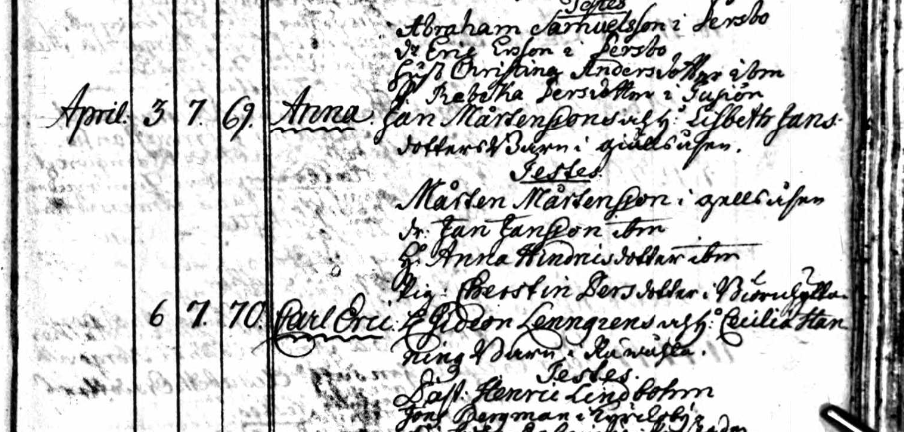 Testes
Abraham Samuelsson i Persbo
dr Eric Ersson i Persbo
Hust Christina Andersdotter ibm
P. Rebeka Persdotter i
April. 3 7. 69. Anna Jan Mårtenssons och H: Lisbetts Jans-
dotters Barn i giällsåsen.
Testes
Mårten Mårtensson i gellsåsen
dr: Jan Jansson ibm
H. Anna Hindricsdotter ibm
Pig: Cherstin Persdotter i
6 7. 70. Carl Eric. Gideon Lenngrens och H: Cecilia Han
ning Barn i
Testes.
Henric Lindbohm
Jons Bergman i